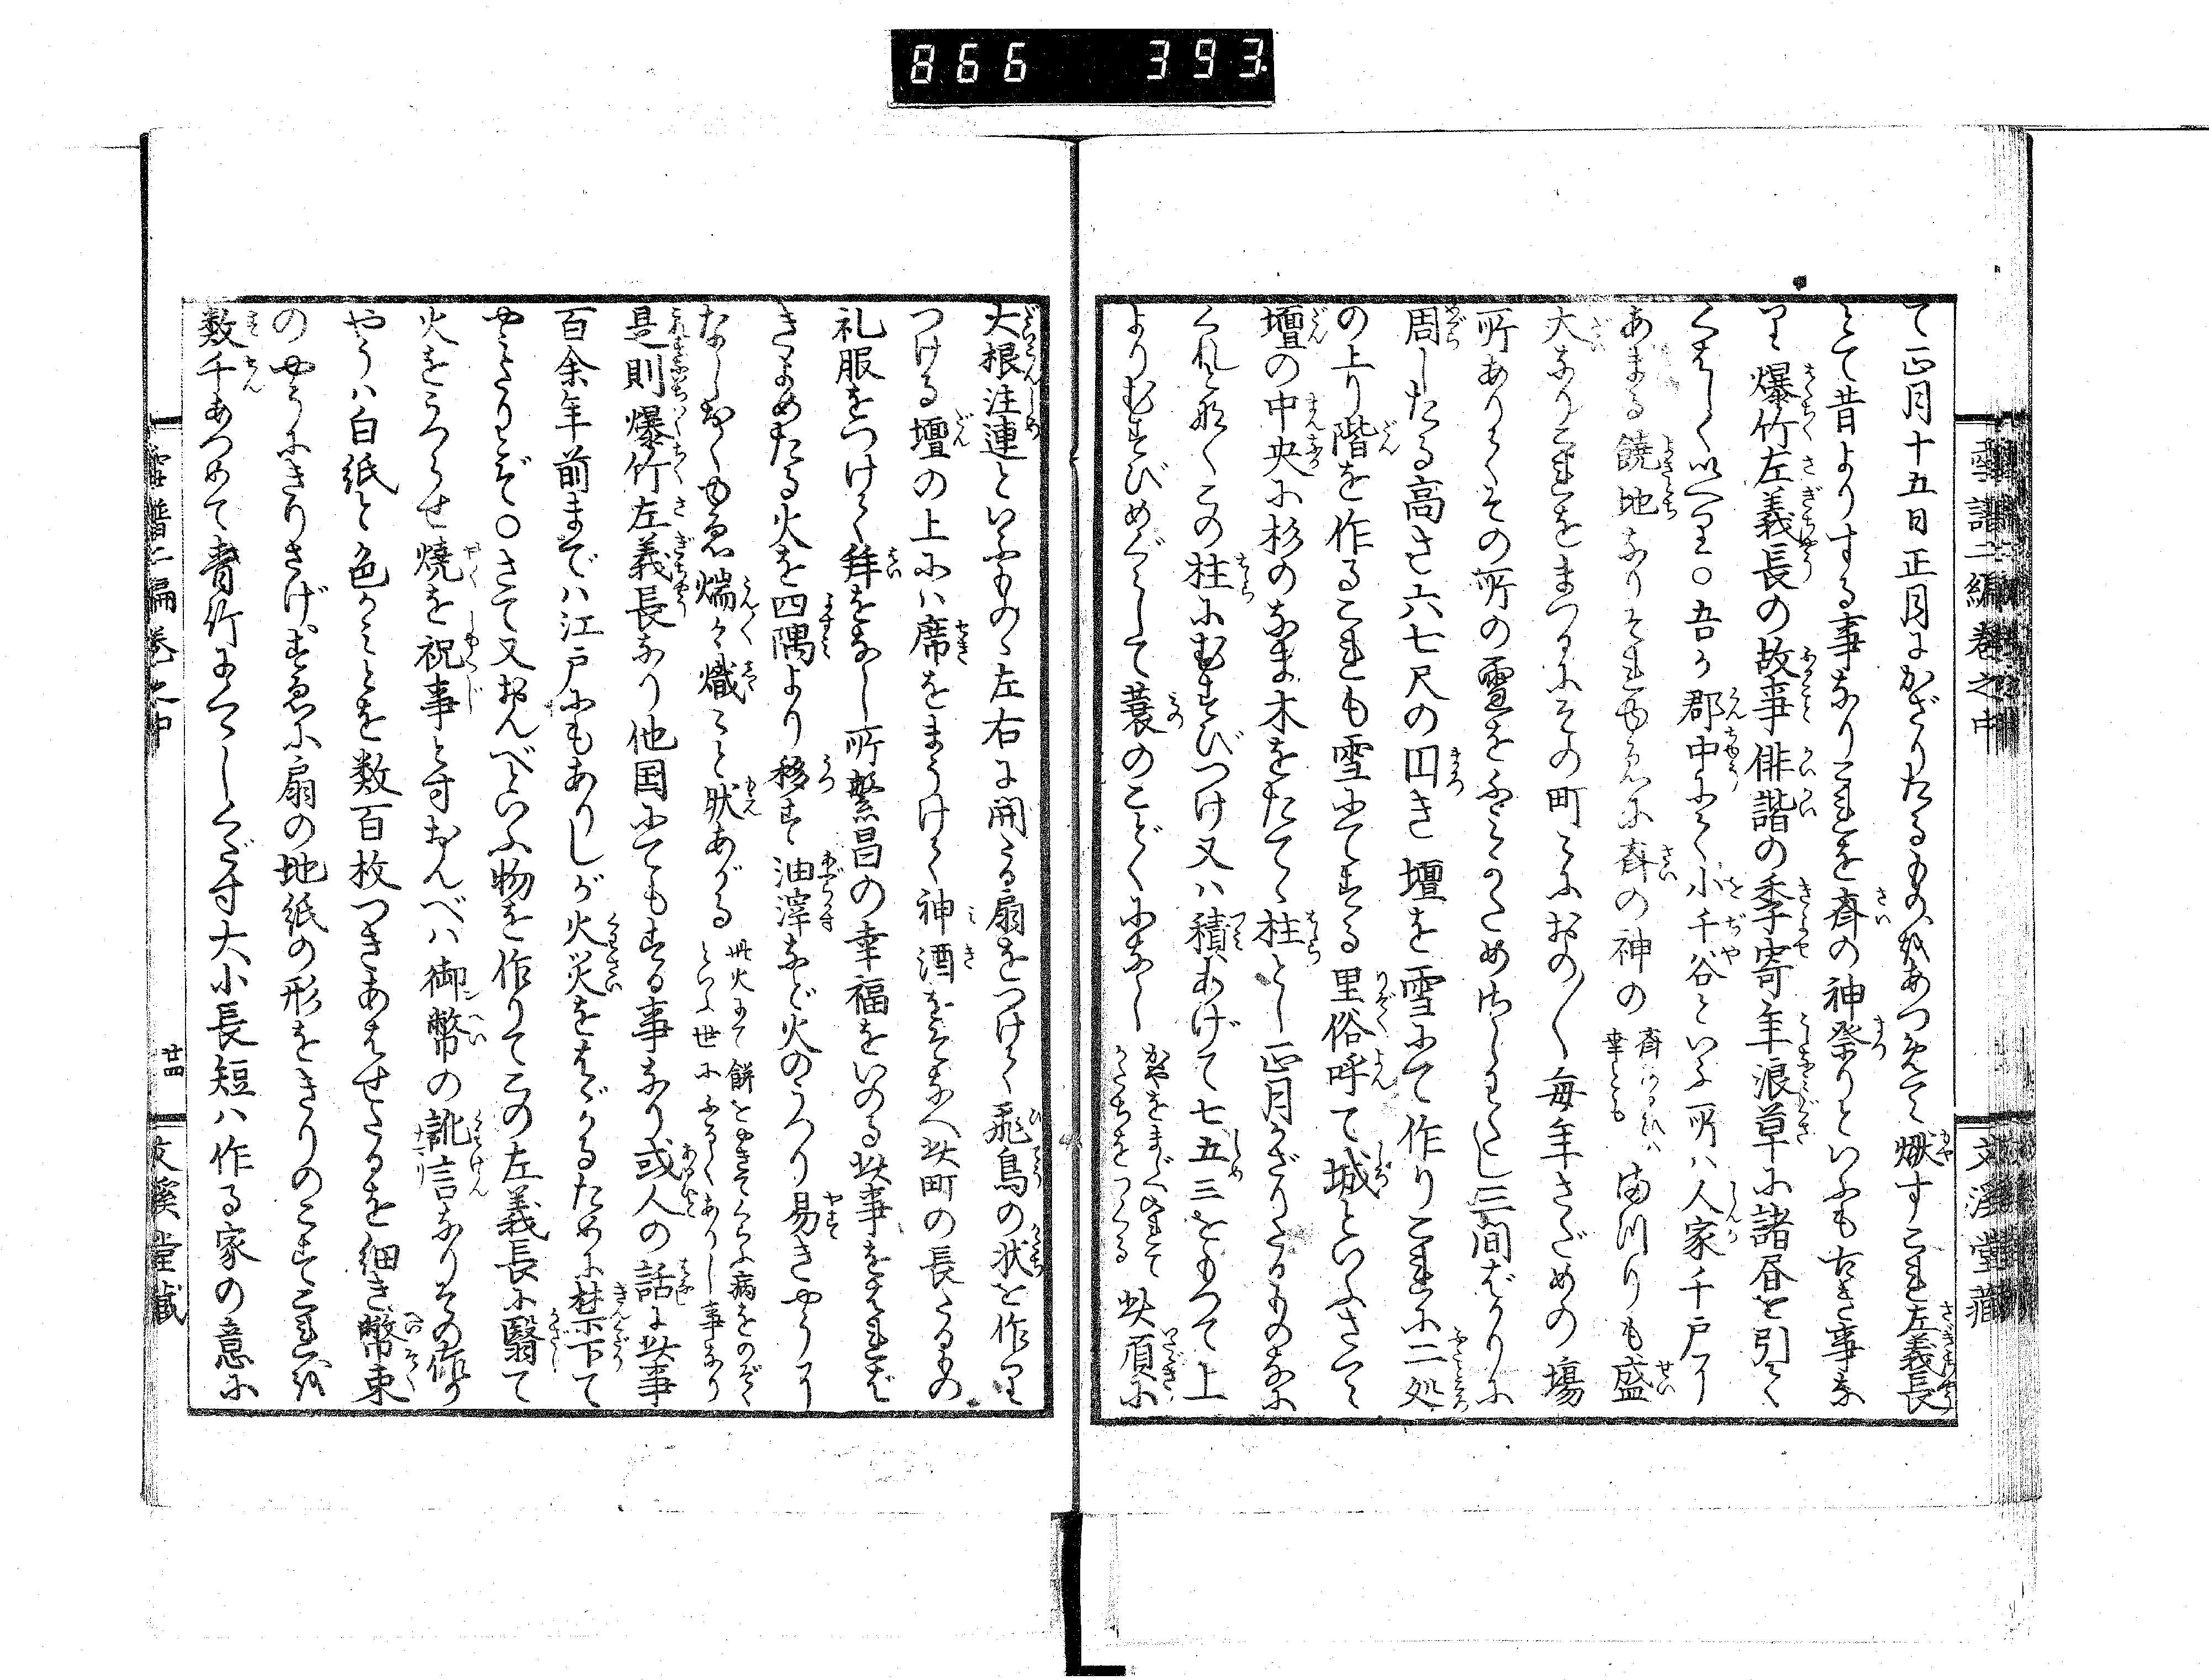 866 393.
雪譜二編巻之中
文渓堂蔵
て正月十五日正月にかざりたるものをあつめて燃すこれ左義長
とて昔よりする事なりこれを斉の神祭りといふも古き事な
り爆竹左義長の故事俳諧の季寄年浪草に諸書を引て
くはしくいへり○吾が郡中にて小千谷といふ所は人家千戸に
あまる饒地なりそれゆゑに斉の神の
斉あるひは
幸とも
まつりも盛
大なりこれをまつるにその町々におの〳〵毎年さだめの場
所ありてその所の雪をふみかためおしならし三間ばかりに
周したる高さ六七尺の円き壇を雪にて作りこれに二処
の上り階を作るこれも雪にてする里俗呼て城といふさて
壇の中央に杉のなま木をたてゝ柱とし正月かざりたるものなに
くれとなくこの柱にむすびつけ又は積あげて七五三をもつて上
よりむすびめぐらして蓑のごとくになし
かやをまじへ入れて
かたちをつくる
此頂に
大根注連といふものゝ左右に開たる扇をつけて飛鳥の状を作り
つける壇の上には席をまうけて神酒をそなへ此町の長たるもの
礼服をつけて拝をなし所繁昌の幸福をいのる此事をはれば
きよめたる火を四隅より移す油滓など火のうつり易きやうに
なしおくゆゑ煓々熾々と然あがる
此火にて餅をやきてくらふ病をのぞく
といふ世にふるくありし事なり
是則爆竹左義長なり他国にてもする事なり或人の話に此事
百余年前までは江戸にもありしが火災をはゞかるために禁下て
やみたりとぞ○さて又おんべといふ物を作りてこの左義長に翳て
火をうつらせ焼を祝事と可おんべは御幣の訛言なりその作り
やうは白紙と色かみとを数百枚つきあはせたるを細き幣束
のやうにきりさげすゑに扇の地紙の形をきりのこすこれを
数千あつめて青竹にくゝしくだす大小長短は作る家の意に
雪譜二編巻之中
廿四
文渓堂蔵